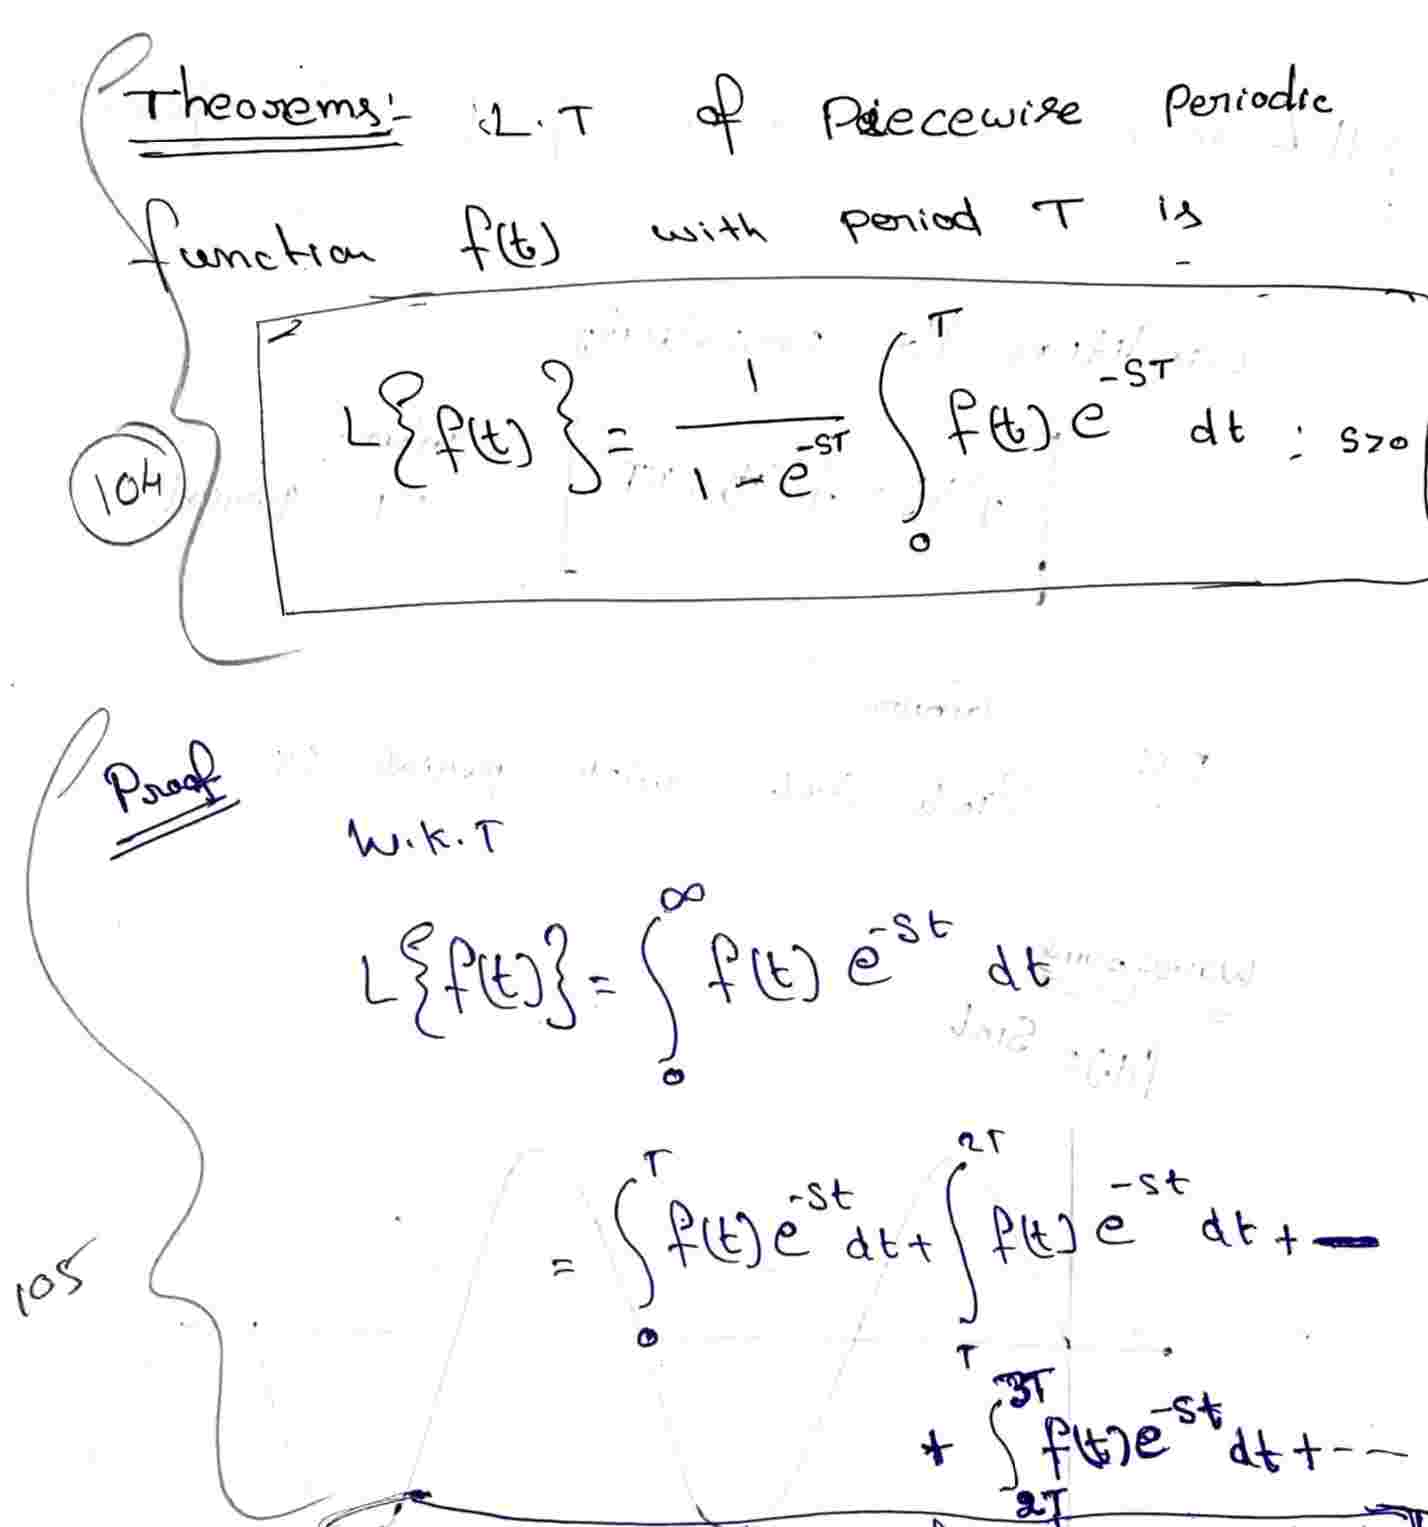 Theorems:- L.T of Piecewise Periodic
function f(t) with period T is
L{f(t)} = 1/(1-e^-ST) ∫_0^T f(t).e^-ST dt : s>0
104
Proof
W.K.T
L{f(t)} = ∫_0^∞ f(t) e^-st dt
= ∫_0^T f(t) e^-st dt + ∫_T^2T f(t) e^-st dt + —
105
+ ∫_2T^3T f(t) e^-st dt + ---